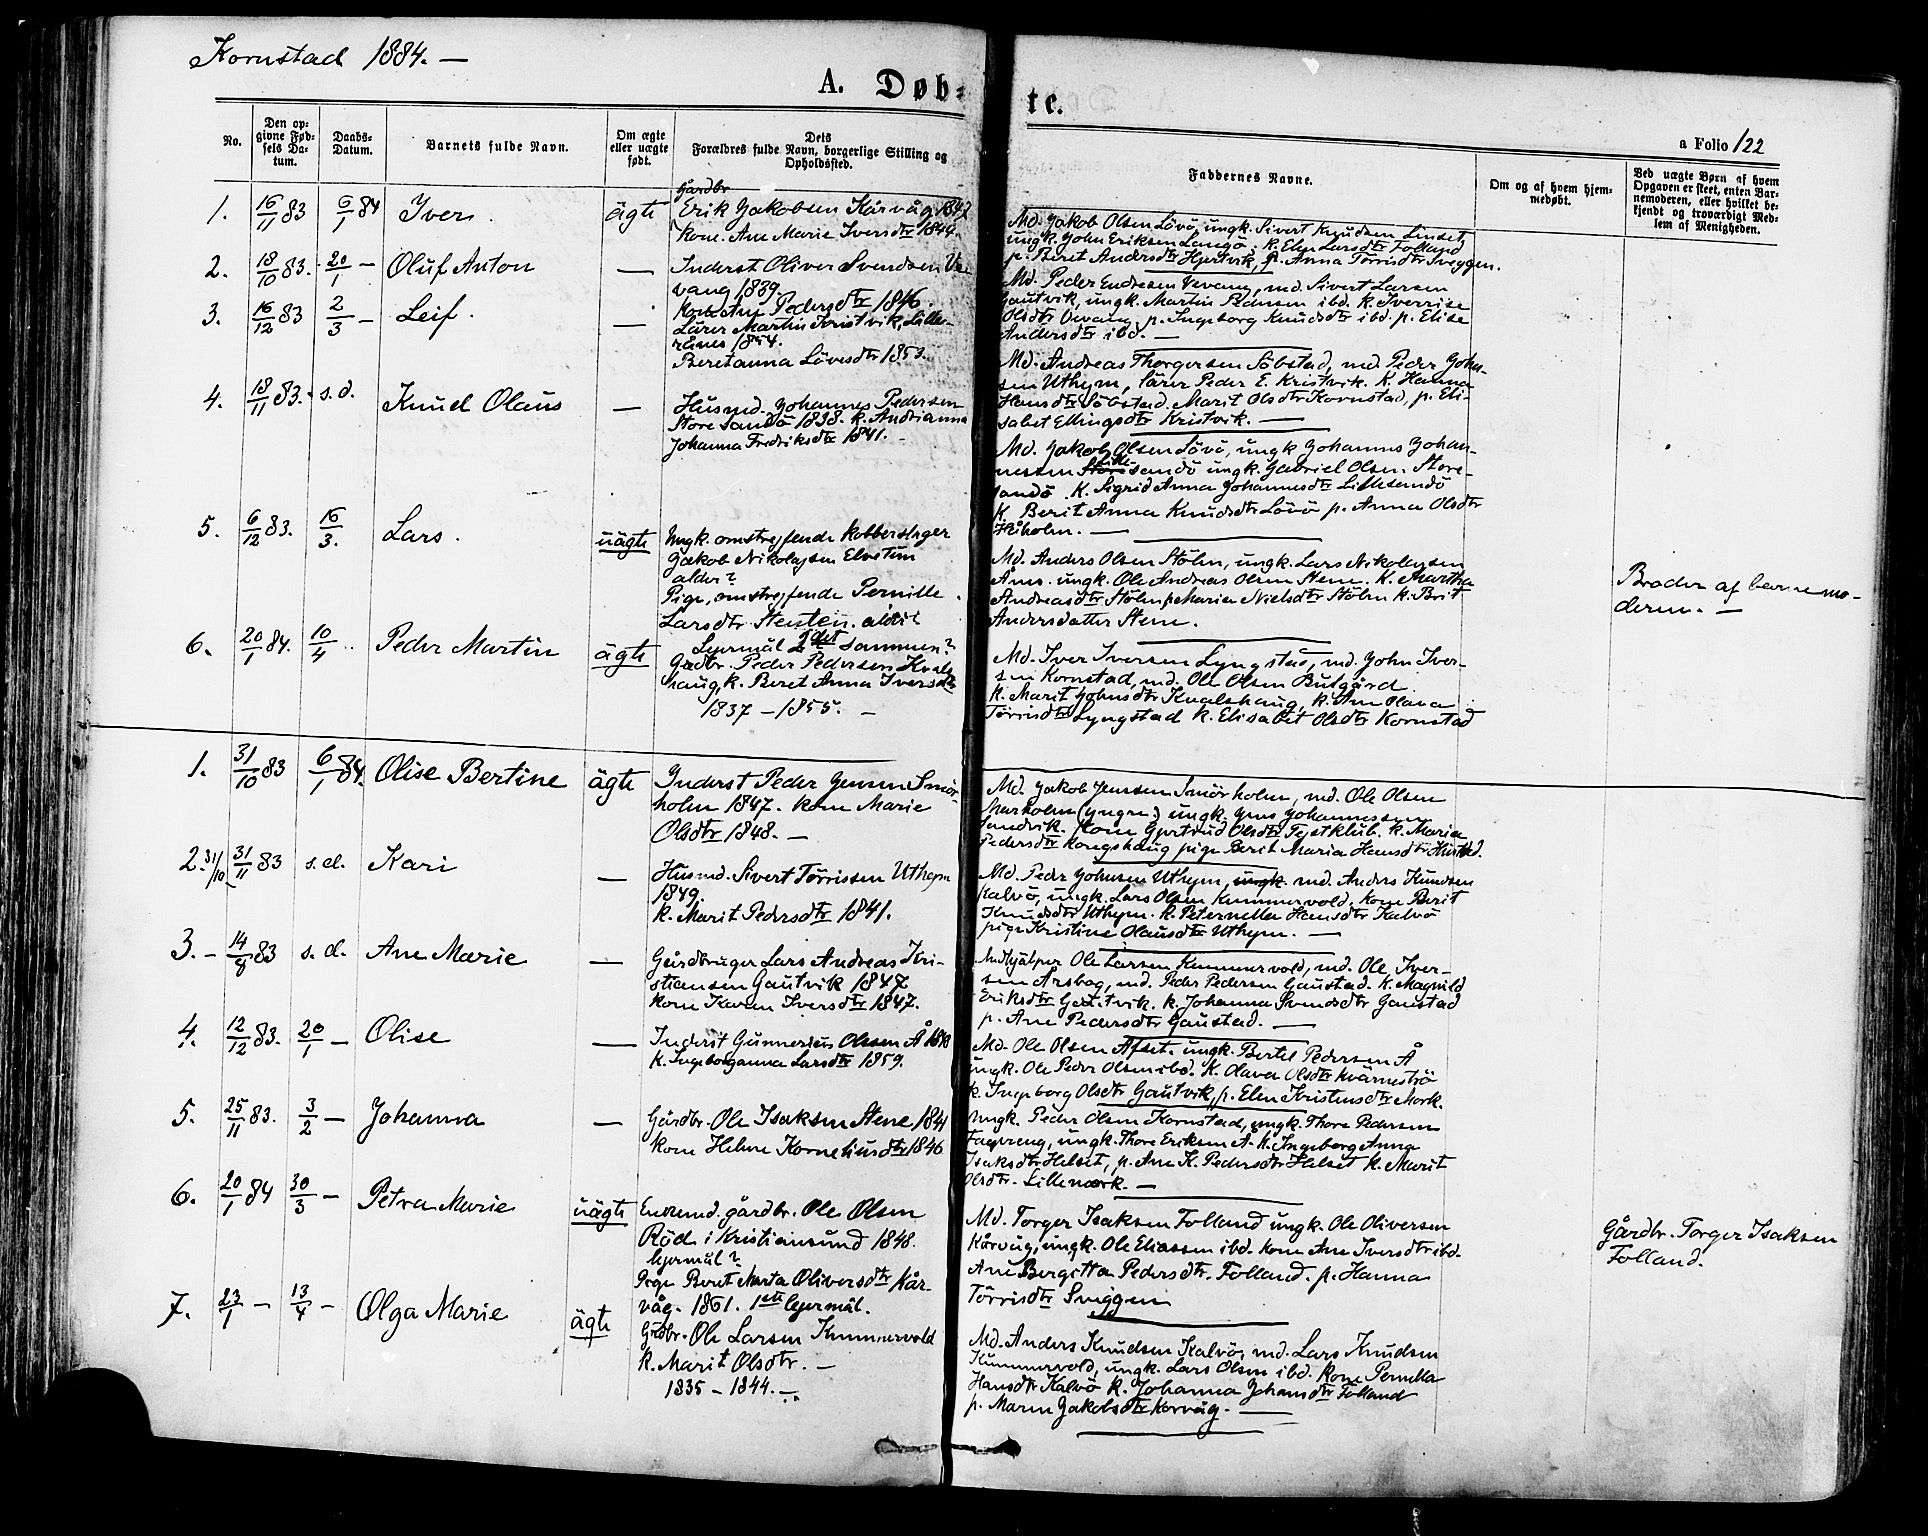 Kornstad 1884. —
A. Døb=
te.
a Folio 122
No.
Den op-
givne Fød-
sels Da-
tum.
Daabs-
Datum.
Barnets fulde Navn.
Om ægte
eller uægte
født.
Dets
Forældres fulde Navn, borgerlige Stilling og
Opholdssted.
Faddernes Navne.
Om og af hvem hjem-
medøbt.
Ved uægte Børn af hvem
Opgaven er skeet, enten Bar-
nemoderen, eller hvilket be-
kjendt og troværdigt Med-
lem af Menigheden.
1. 16/11 83 6/1 84 Iver. ägte
Gårdbr
Erik Jakobsen Kårvåg 1847
kone. Ane Marie Iversdtr 1844.
Md. Jakob Olsen Lövö, ungk. Sivert Knudsen Linset
ungk. John Eriksen Langö. k. Elen Larsdtr Folland
p. Beret Andersdtr Hjertvik, p. Anna Törrisdtr Sveggen.
2. 18/10 83. 20/1 — Oluf Anton —
Inderst Oliver Svendsen Ve-
vang 1839.
kone Ane Pedersdtr 1846.
Md. Peder Endresen Vevang, md. Sivert Larsen
Gautvik, ungk. Martin Pedersen ibd. k. Iverrise
Olsdtr Vevang, p. Ingeborg Knudsdtr ibd. p. Elise
Andersdtr ibd. —
3. 16/12 83 2/3 — Leif. —
Lärer Martin Kristvik, Lille-
1854.
Beretanna Lövesdtr 1853.
Md. Andreas Thorgersen Söbstad, md Peder John-
sen Uthejm, lärer Peder E. Kristvik. K. Hanna
Hansdtr Söbstad. Marit Olsdtr Kornstad, p. Eli-
sabet Ellingsdtr Kristvik. —
4. 18/11 83. s. d. Knud Olaus —
Husmd. Johannes Pedersen
Store Sandö 1838. k. Andrianna
Johanna Fredriksdtr 1841. —
Md. Jakob Olsen Lövö, ungk Johannes Johan-
nessen Lille sandö ungk. Gabriel Olsen. Store-
sandö. K. Sigrid Anna Johannesdtr Lillesandö
K. Berit Anna Knudsdtr Lövö p. Anna Olsdtr
Håholm. —
5. 6/12 83. 16/3. Lars. uägte
Ungk. omstrejfende kobberslager
Jakob Nikolajsen Elvetun
alder?
Pige, omstrejfende Pernille
Larsdtr Stenten. alder
Lejermål 1det sammen?
Md. Anders Olsen Stölen, ungk. Lars Nikolaysen
Ånes. ungk. Ole Andreas Olsen Stene. K. Martha
Andreasdtr Stölen p Maria Nielsdtr Stölen k. Brit
Andersdatter Stene.
Broder af barnemo-
deren. —
6. 20/1 84. 10/4 Peder Martin ägte
Grdbr. Peder Pedersen Kvals
haug, k. Beret Anna Iversdtr
1837 – 1855. —
Md. Iver Iversen Lyngstad, md. John Iver-
sen Kornstad, md. Ole Olsen Butgård.
k. Marit Johnsdtr Kvalshaug, k. Ane Olava
Törrisdtr Lyngstad k. Elisabet Olsdtr Kornstad
1. 31/10 83 6/1 84. Olise Bertine ägte
Inderst Peder Jensen Smör-
holm 1847. kone Marie
Olsdtr 1848. —
Md. Jakob Jenssen Smörholm, md. Ole Olsen
Marholm (yngre) ungk. Jens Johannessen
Sandvik. kone Gjertrud Olsdtr Tejstklub. k. Maria
Pedersdtr Kongshaug pige Berit Maria Hansdtr
2. 31/10 31/11 83 s. d. Kari —
Husmd. Sivert Törrissen Uthejm
1849.
k. Marit Pedersdtr 1841.
Md. Peder Johnsen Uthejm, ungk. md. Anders Knudsen
Kalvö, ungk. Lars Olsen Kummervold. kone Berit
Knudsdtr Uthejm. k. Peternella Hansdtr Kalvö
pige Kristine Olausdtr Uthejm. —
3. — 14/8 83 s. d. Ane Marie —
Gårdbruger Lars Andreas Kri-
stiansen Gautvik 1847
kone Karen Iversdtr 1847.
Medhjälper Ole Larsen Kummervold, md. Ole Iver-
sen Arsbog, md. Peder Pedersen Gaustad. K. Magnild
Eriksdtr Gautvik. k. Johanna Svendsdtr Gaustad
p. Ane Pedersdtr Gaustad. —
4. 12/12 83. 20/1 — Olise —
Inderst Gunnerius Olesen Å
k. Ingeborganna Larsdtr 1859.
Md. Ole Olsen Afset. ungk. Bertel Pedersen Å
ungk. Ole Peder Olsen ibd. K. Olava Olsdtr
k. Ingeborg Olsdtr Gautvik, p. Elen Kristensdtr Mork.
5. 25/11 83. 3/2 — Johanna —
Gårdbr. Ole Isaksen Stene 1841
kone Helene Korneliusdtr 1846
Ungk. Peder Olsen Kornstad, ungk. Thore Pedersen
Fagereng, ungk. Thore Eriksen A. k. Ingeborg Anna
Isaksdtr Helset, p. Ane K. Pedersdtr Helset k. Marit
Olsdtr. Lillemork. —
6. 20/1 84 30/3 — Petra Marie uägte
Enkemd. gårdbr. Ole Olsen
Röd i Kristiansund 1848.
lejermål?
Pige Beret Marta Oliversdtr Kår-
våg. 1861. 1ste lejermål.
Md. Torger Isaksen Folland ungk. Ole Oliversen
Kårvåg, ungk. Ole Eliassen ibd. kone Ane Iversdtr ibd.
Ane Bergitta Pedersdtr. Folland. p. Hanna
Törrisdtr Sveggen
Gårdbr. Torger Isaksen
Folland.
7. 23/1 — 13/4 — Olga Marie ägte
Grdbr. Ole Larsen Kummervold
k. Marit Olsdtr. —
1835 – 1844. —
Md. Anders Knudsen Kalvö, md. Lars Knudsen
Kummervold, ungk. Lars Olsen ibd. kone Pernella
Hansdtr Kalvö k. Johanna Johansdtr Folland
p. Maren Jakobsdtr Korvåg. —